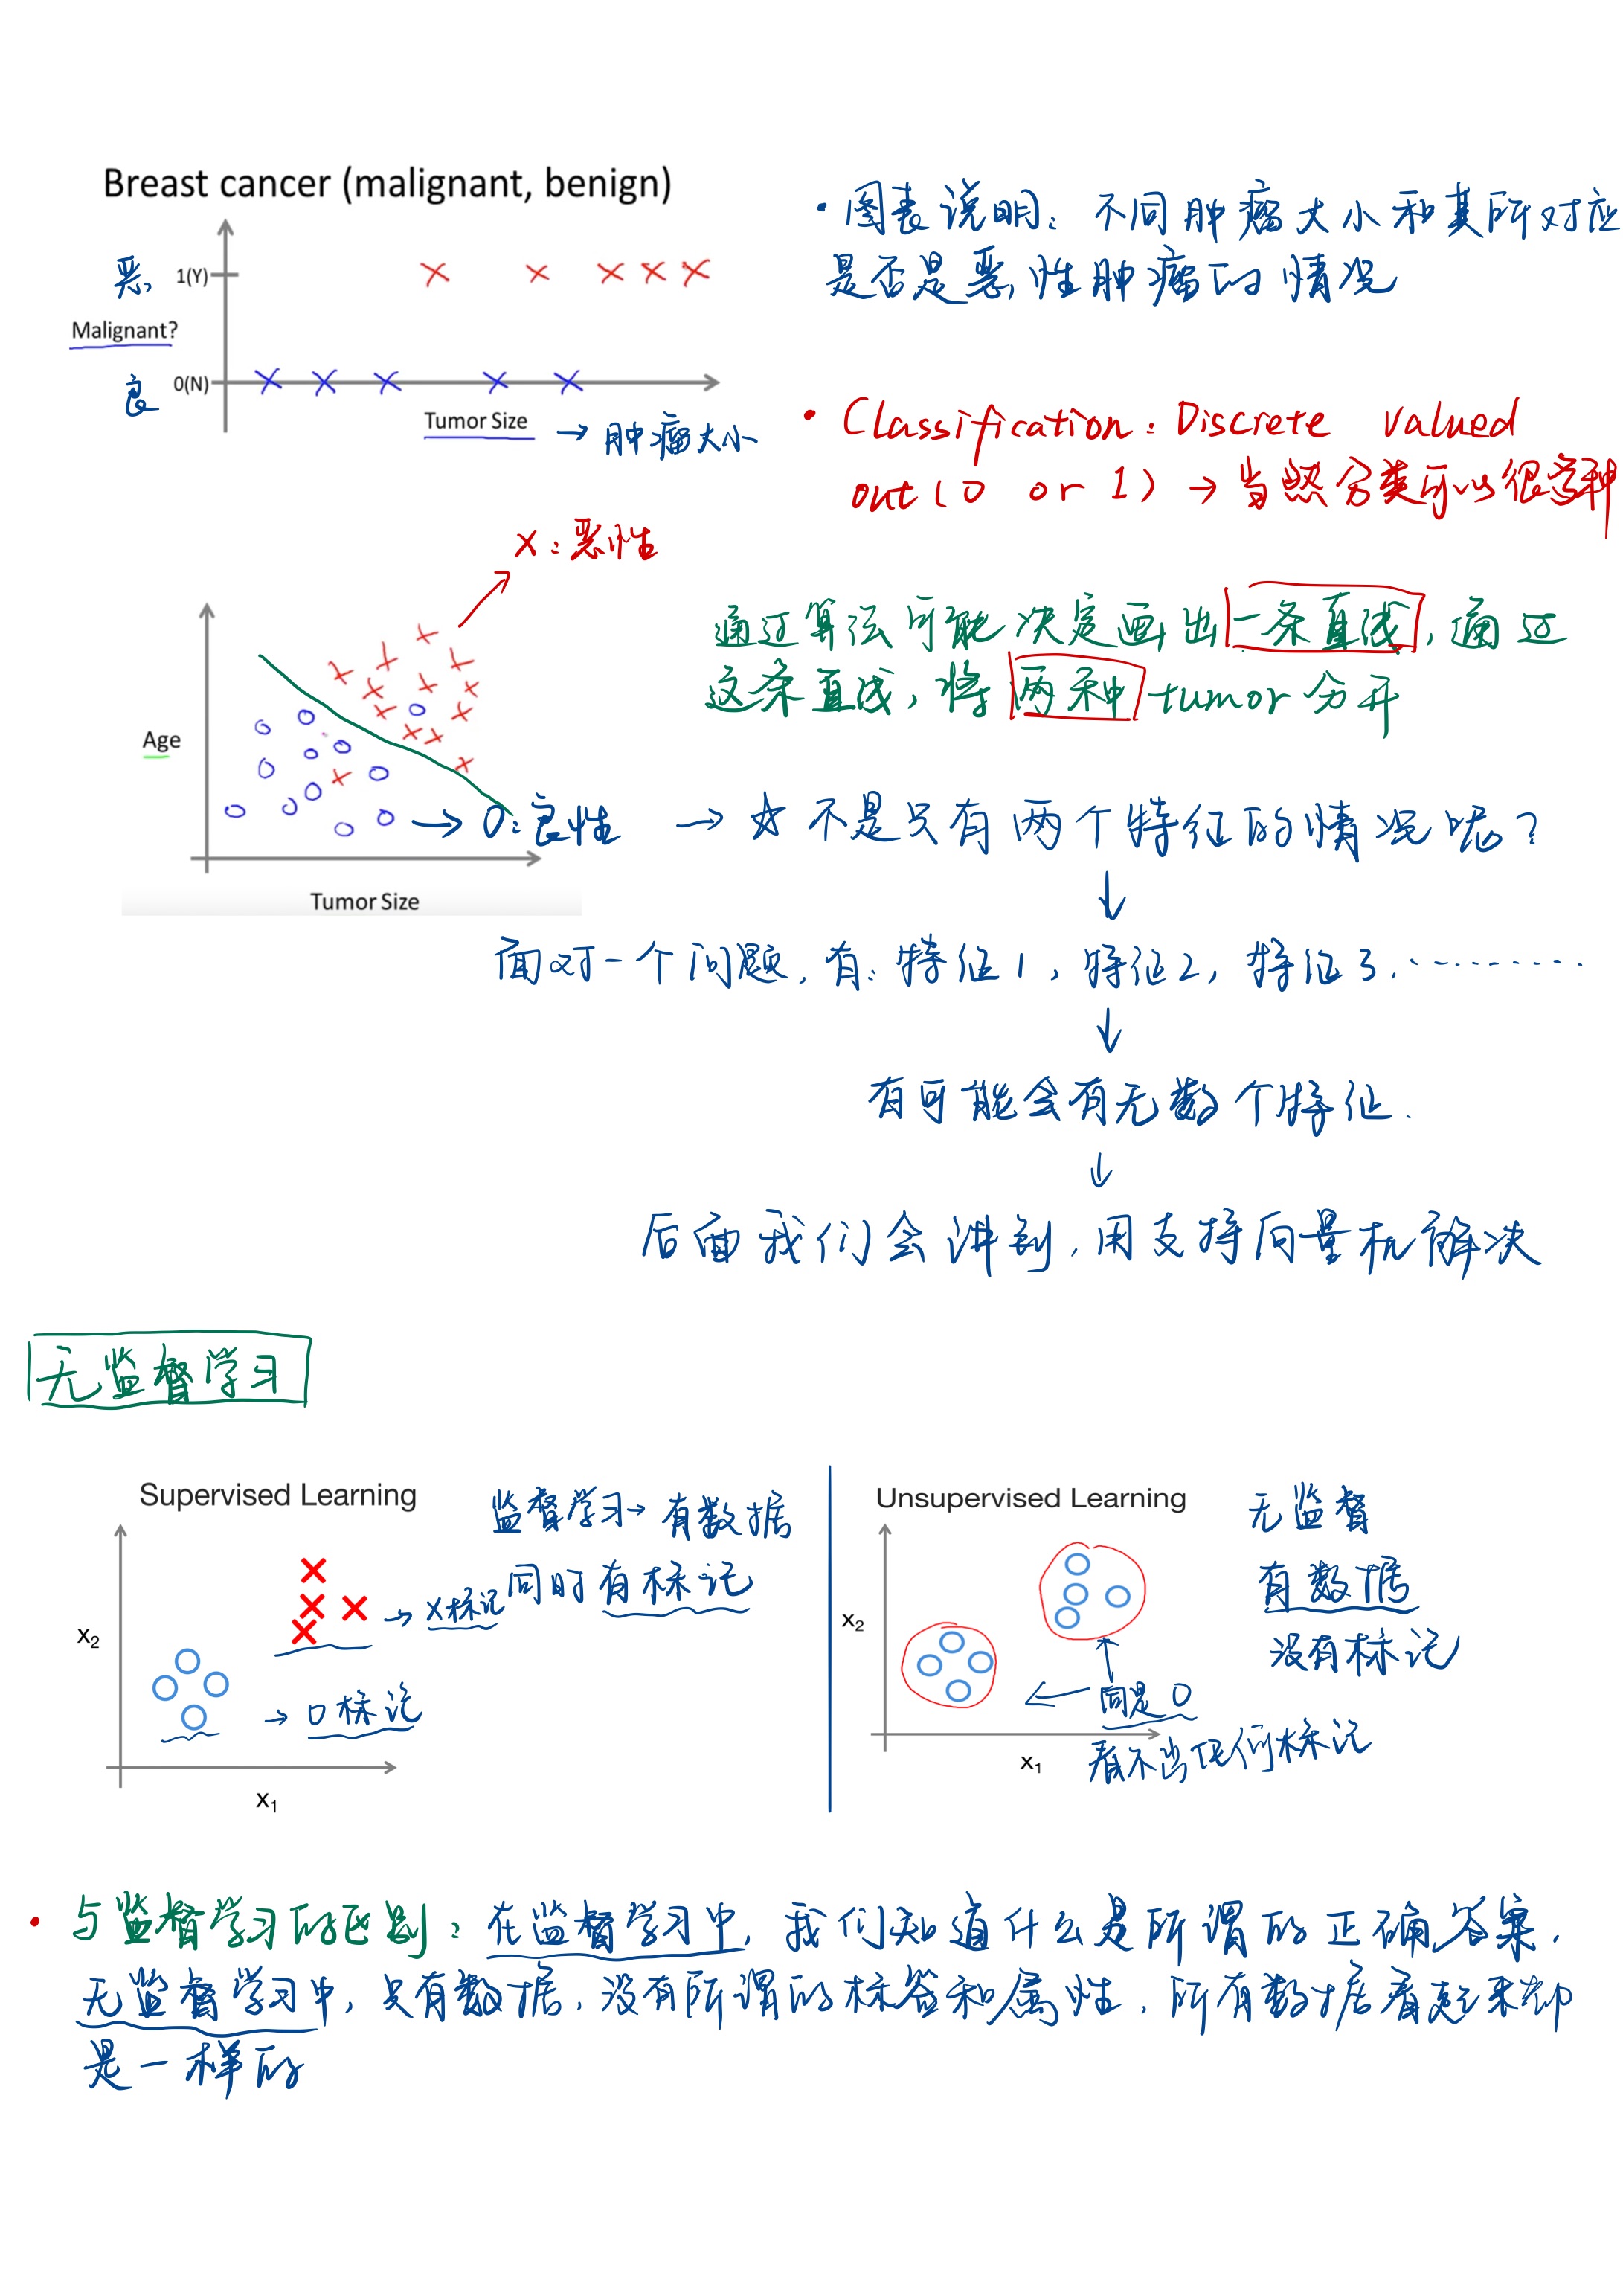 Breast cancer (malignant, benign)
恶
1(Y)
Malignant?
良
0(N)
Tumor Size
→ 肿瘤大小
• 图表说明: 不同肿瘤大小和其所对应
是否是恶性肿瘤的情况
• Classification: Discrete valued
out (0 or 1) → 当然分类可以很多种
x: 恶性
通过算法可能决定画出一条直线, 通过
这条直线, 将两种 tumor 分开
Age
Tumor Size
→ O: 良性 → ☆ 不是只有两个特征的情况呢?
↓
面对一个问题, 有: 特征1, 特征2, 特征3, ………
↓
有可能会有无数个特征.
↓
后面我们会讲到, 用支持向量机解决
无监督学习
Supervised Learning
监督学习→有数据
同时有标记
→ X标记
→ O标记
x₂
x₁
Unsupervised Learning
无监督
有数据
没有标记
x₂
同是O
x₁
看不出任何标记
• 与监督学习的区别: 在监督学习中, 我们知道什么是所谓的正确答案.
无监督学习中, 只有数据, 没有所谓的标签和属性, 所有数据看起来都
是一样的